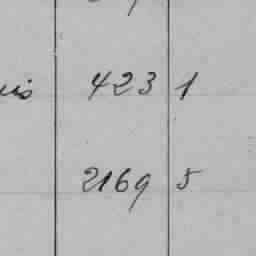 423 1
2169 5